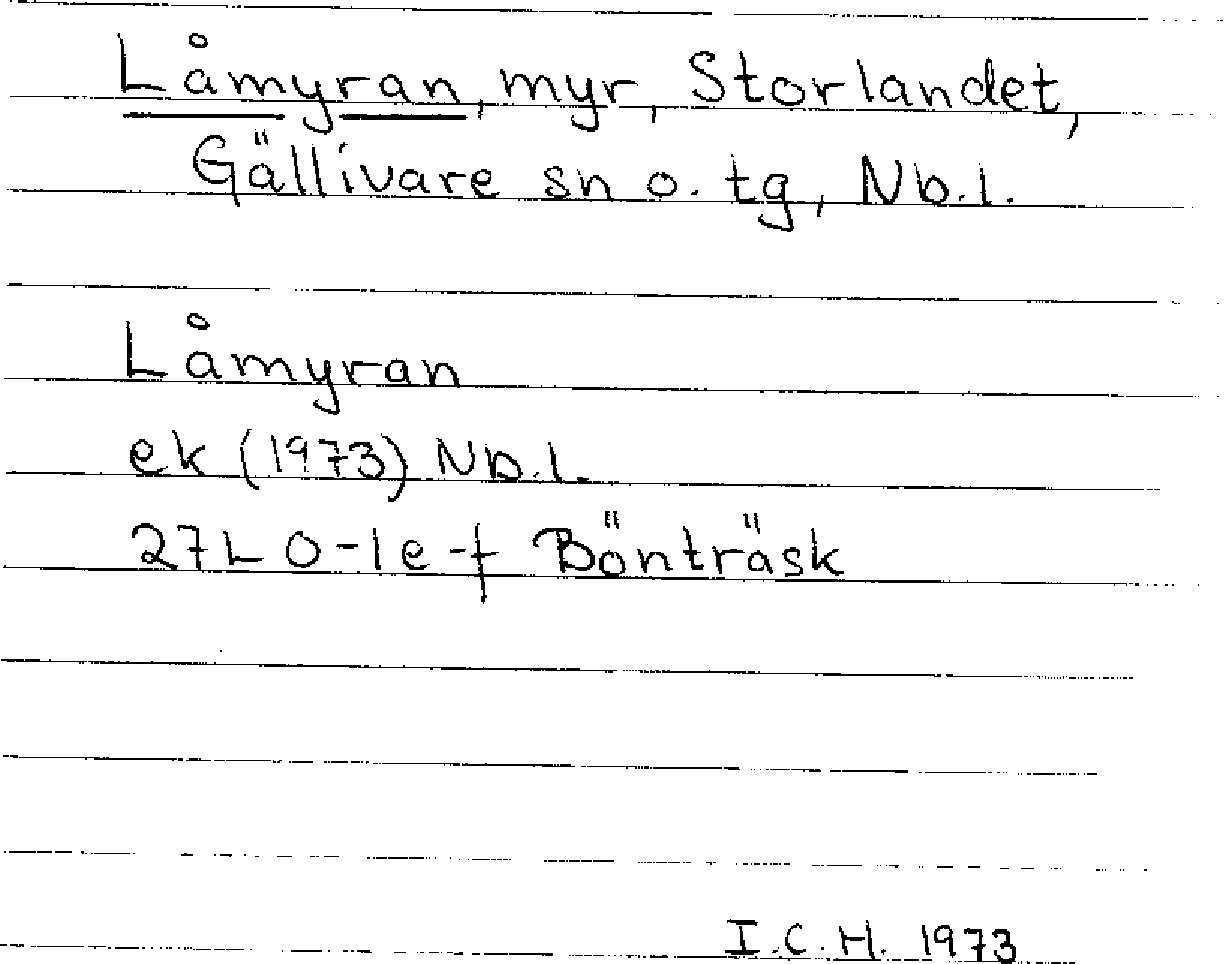 Låmyran, myr, Storlandet,
Gällivare sn o. tg, Nb.l.
Låmyran
ek (1973) Nb.l.
27L 0-1e-f Bönträsk
I.C.H. 1973